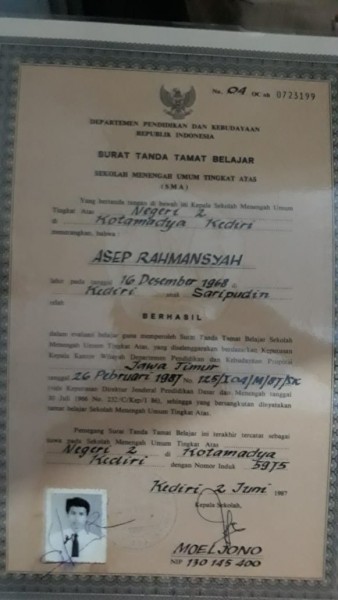 No. 04 OC oh 0723199
DEPARTEMEN PENDIDIKAN DAN KEBUDAYAAN
REPUBLIK INDONESIA
SURAT TANDA TAMAT BELAJAR
SEKOLAH MENENGAH UMUM TINGKAT ATAS
(SMA)
Yang bertanda tangan di bawah ini Kepala Sekolah Menengah Umum
Tingkat Atas Negeri 2
di Kotamadya Kediri
menerangkan, bahwa
ASEP RAHMANSYAH
lahir pada tanggal 16 Desember 1968 di
Kediri anak Saripudin
telah
BERHASIL
dalam evaluasi belajar guna memperoleh Surat Tanda Tamat Belajar Sekolah
Menengah Umum Tingkat Atas, yang diselenggarakan berdasarkan Keputusan
Kepala Kantor Wilayah Departemen Pendidikan dan Kebudayaan Propinsi
Jawa Timur
tanggal 26 Pebruari 1987 No. 125/I04/M/87/SK
Keputusan Direktur Jenderal Pendidikan Dasar dan Menengah tanggal
30 Juli 1986 No. sehingga yang bersangkutan dinyatakan
tamat belajar Sekolah Menengah Umum Tingkat Atas.
Pemegang Surat Tanda Tamat Belajar ini terakhir tercatat sebagai
siswa pada Sekolah Menengah Umum Tingkat Atas
Negeri 2 di Kotamadya
Kediri dengan Nomor Induk 5975
Kediri 2 Juni 1987
Kepala Sekolah,
MOELJONO
NIP 130 145 400